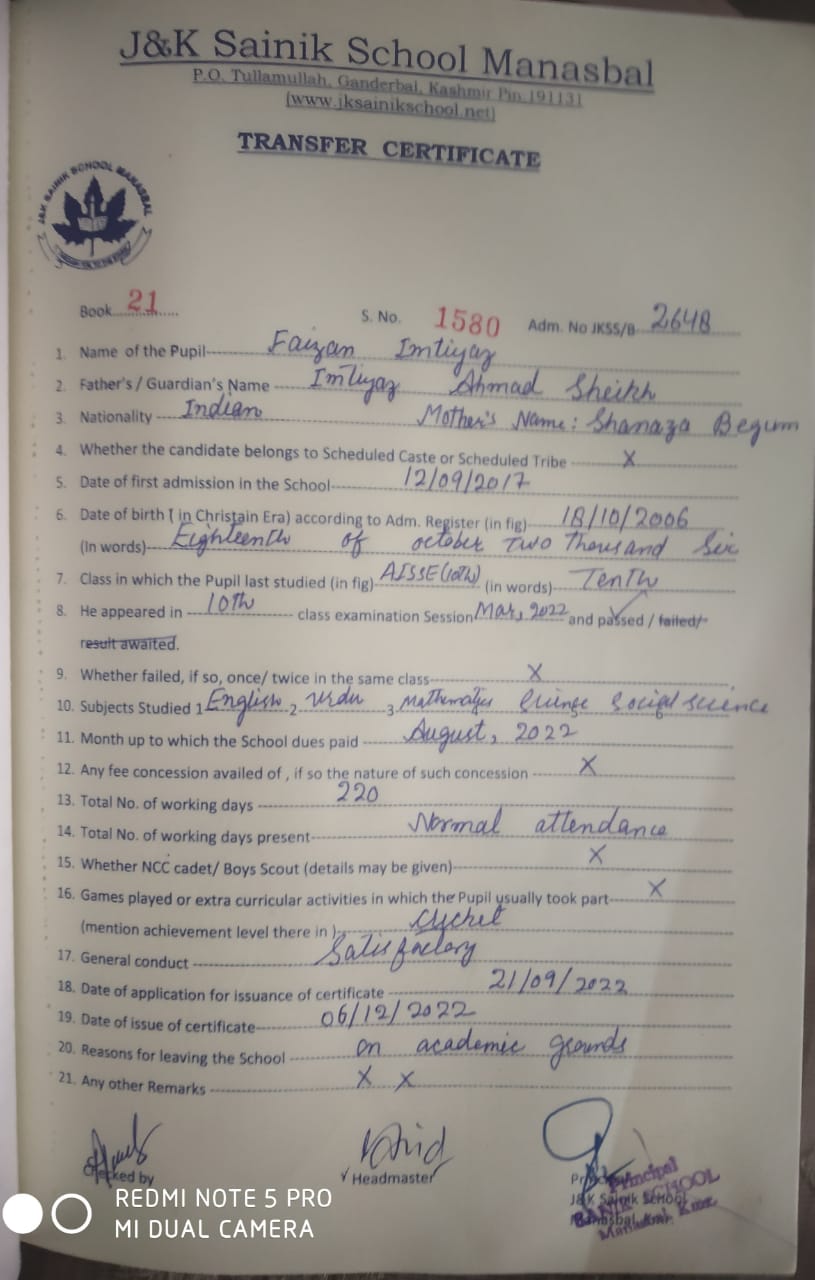 J&K Sainik School Manasbal
P.O. Tullamullah, Ganderbal, Kashmir Pin.191131
(www.jksainikschool.net)
TRANSFER CERTIFICATE
J&K SAINIK SCHOOL MANASBAL
Book 21 S. No. 1580 Adm. No JKSS/B 2648
1. Name of the Pupil Faizan Imtiyaz
2. Father's / Guardian's Name Imtiyaz Ahmad Sheikh
3. Nationality Indian Mother's Name: Shanaza Begum
4. Whether the candidate belongs to Scheduled Caste or Scheduled Tribe X
5. Date of first admission in the School 12/09/2017
6. Date of birth ( in Christain Era) according to Adm. Register (in fig) 18/10/2006
(In words) Eighteenth of october Two Thousand Six
7. Class in which the Pupil last studied (in fig) AISSE (10th) (in words) Tenth
8. He appeared in 10th class examination Session Mar, 2022 and passed / failed/
result awaited.
9. Whether failed, if so, once/ twice in the same class X
10. Subjects Studied 1 English 2 Urdu 3 Mathematics Science Social science
11. Month up to which the School dues paid August, 2022
12. Any fee concession availed of , if so the nature of such concession X
13. Total No. of working days 220
14. Total No. of working days present Normal attendance
15. Whether NCC cadet/ Boys Scout (details may be given) X
16. Games played or extra curricular activities in which the Pupil usually took part X
(mention achievement level there in ) Cricket
17. General conduct Satisfactory
18. Date of application for issuance of certificate 21/09/2022
19. Date of issue of certificate 06/12/2022
20. Reasons for leaving the School on academic grounds
21. Any other Remarks X X
Checked by Headmaster Principal
J&K Sainik School
Manasbal
REDMI NOTE 5 PRO
MI DUAL CAMERA